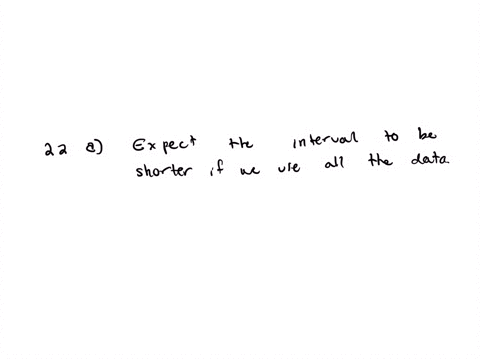 22 a) Expect the interval to be
shorter if we use all the data